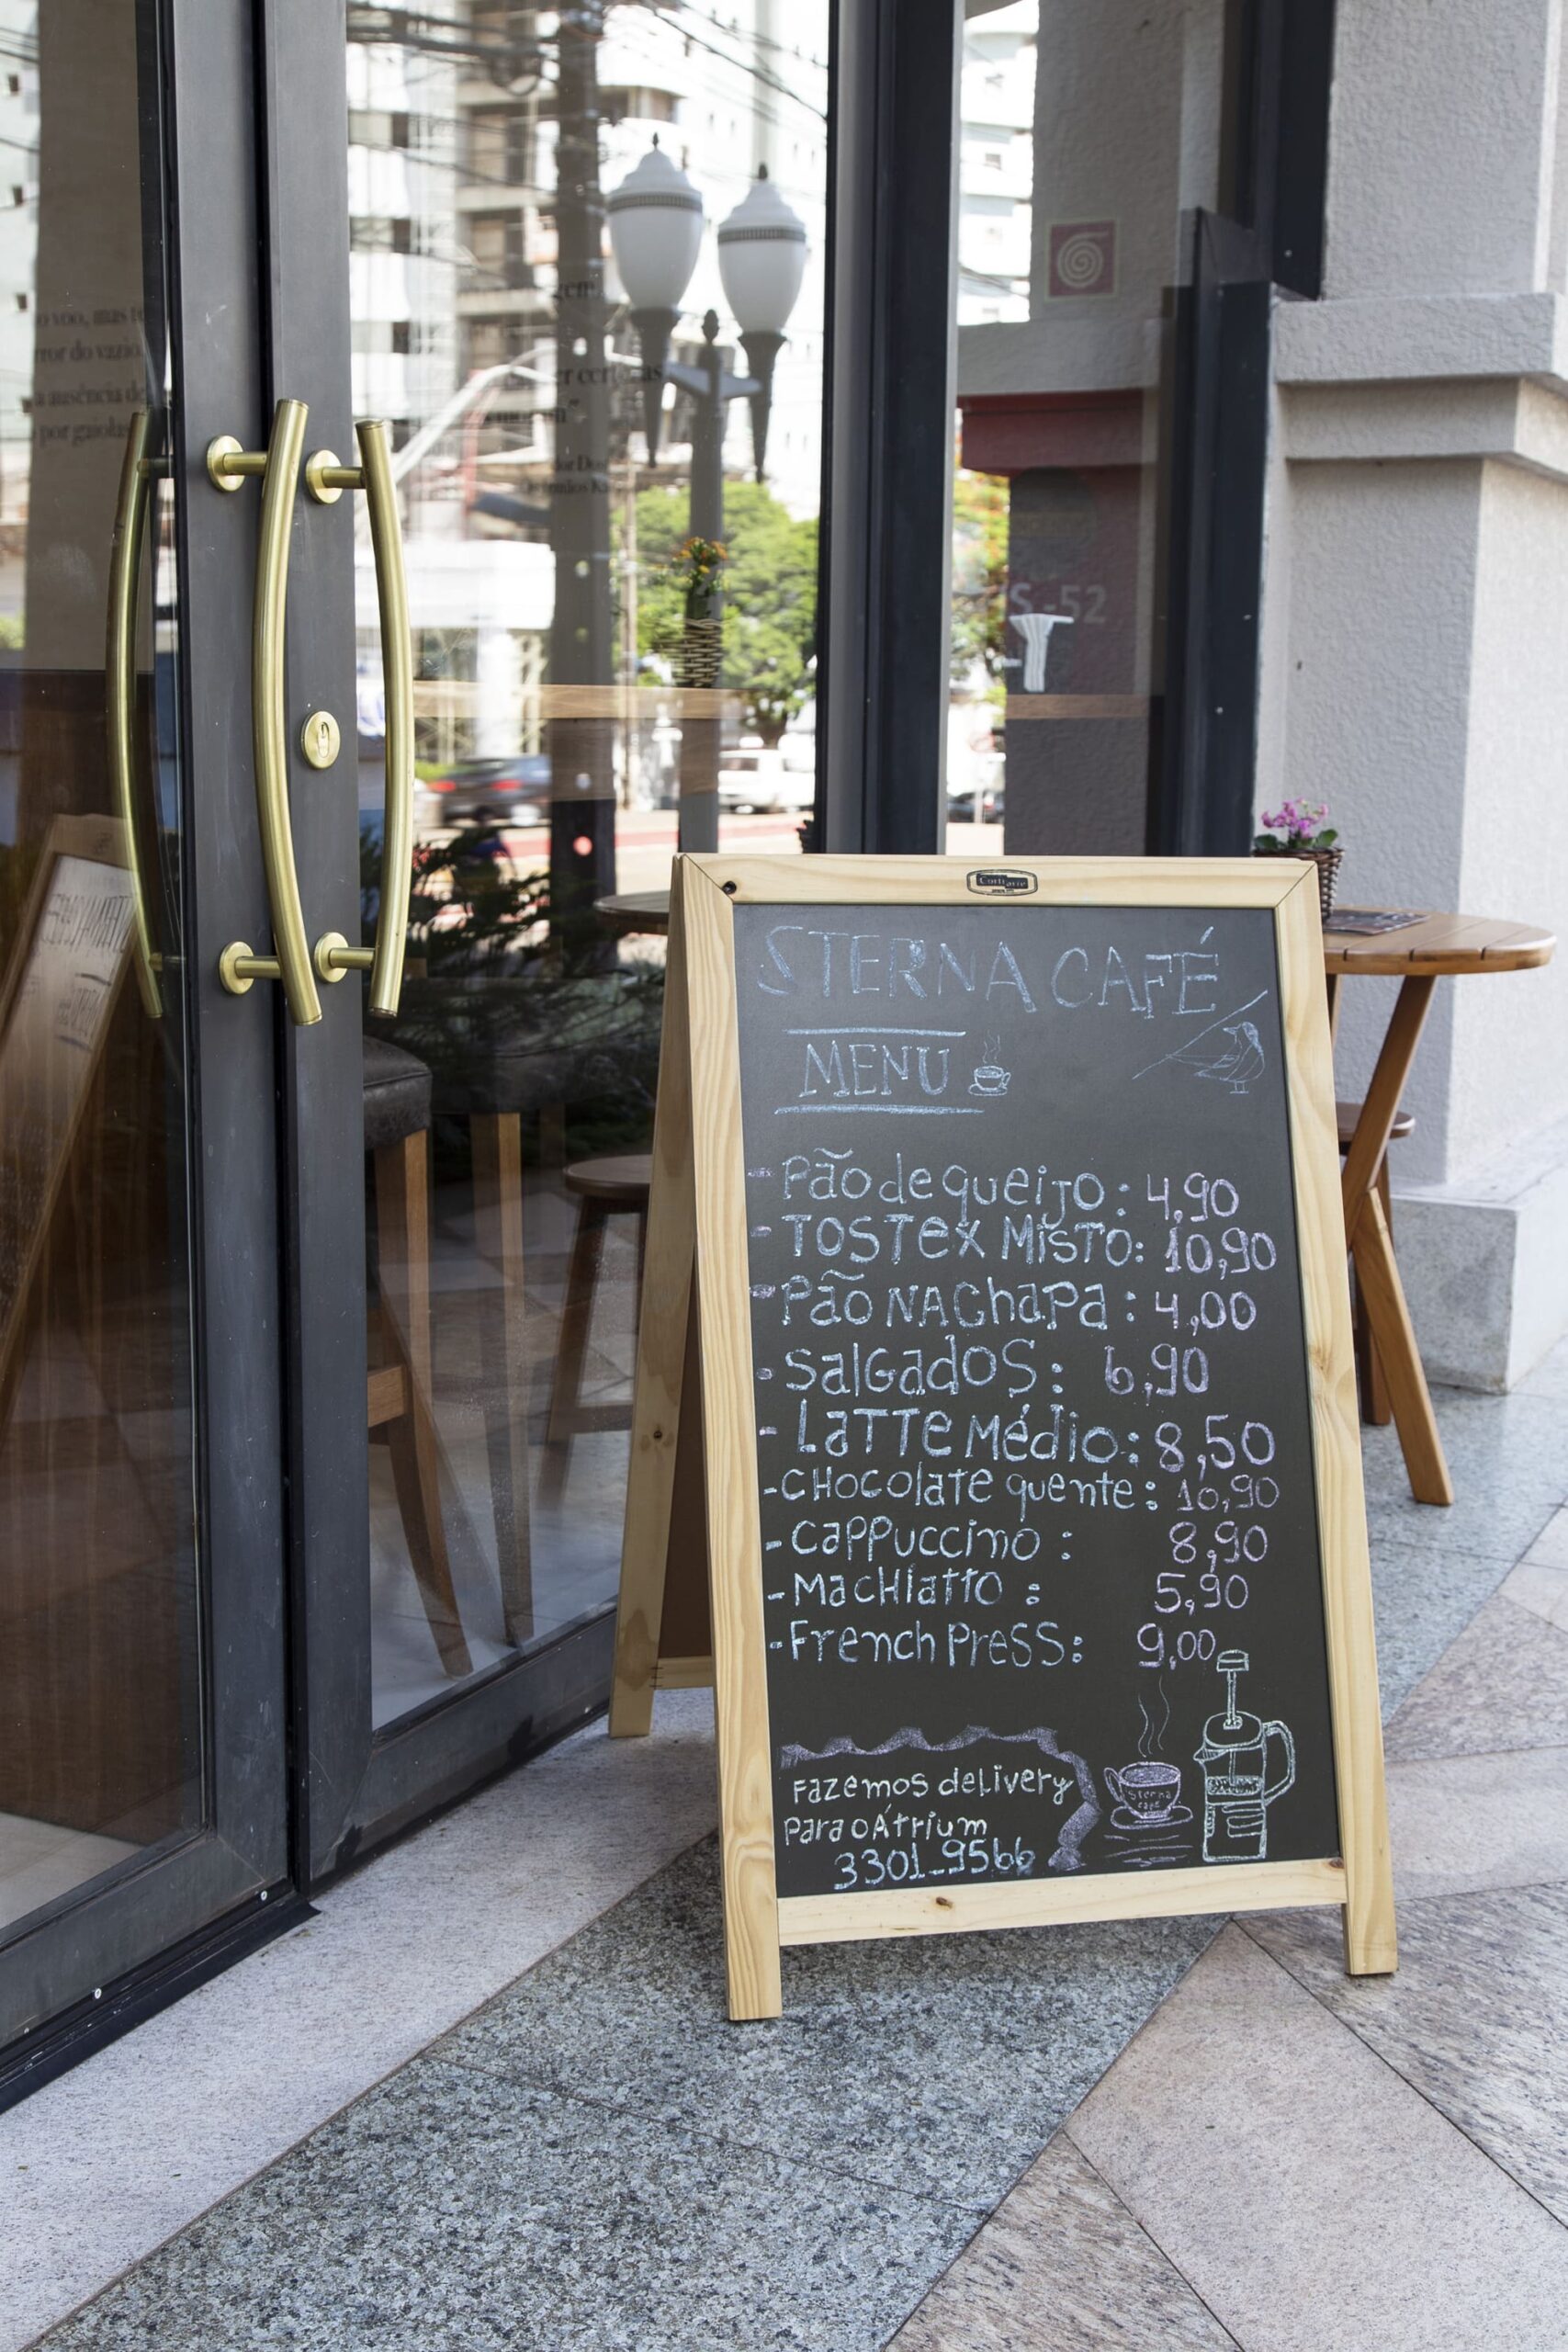 STERNA CAFÉ
MENU
- Pão de queijo: 4,90
- TOSTEX MISTO: 10,90
- Pão NA Chapa: 4,00
- SalGadOS: 6,90
- LATTE Médio: 8,50
- CHocolate quente: 10,90
- Cappuccino: 8,90
- MacHiatto: 5,90
- French Press: 9,00
Fazemos delivery
Para o Átrium
3301_9566
Sterna
café
o voo, mas
ror do vazio.
a ausência de
por gaiolas
er certezas
S.-52